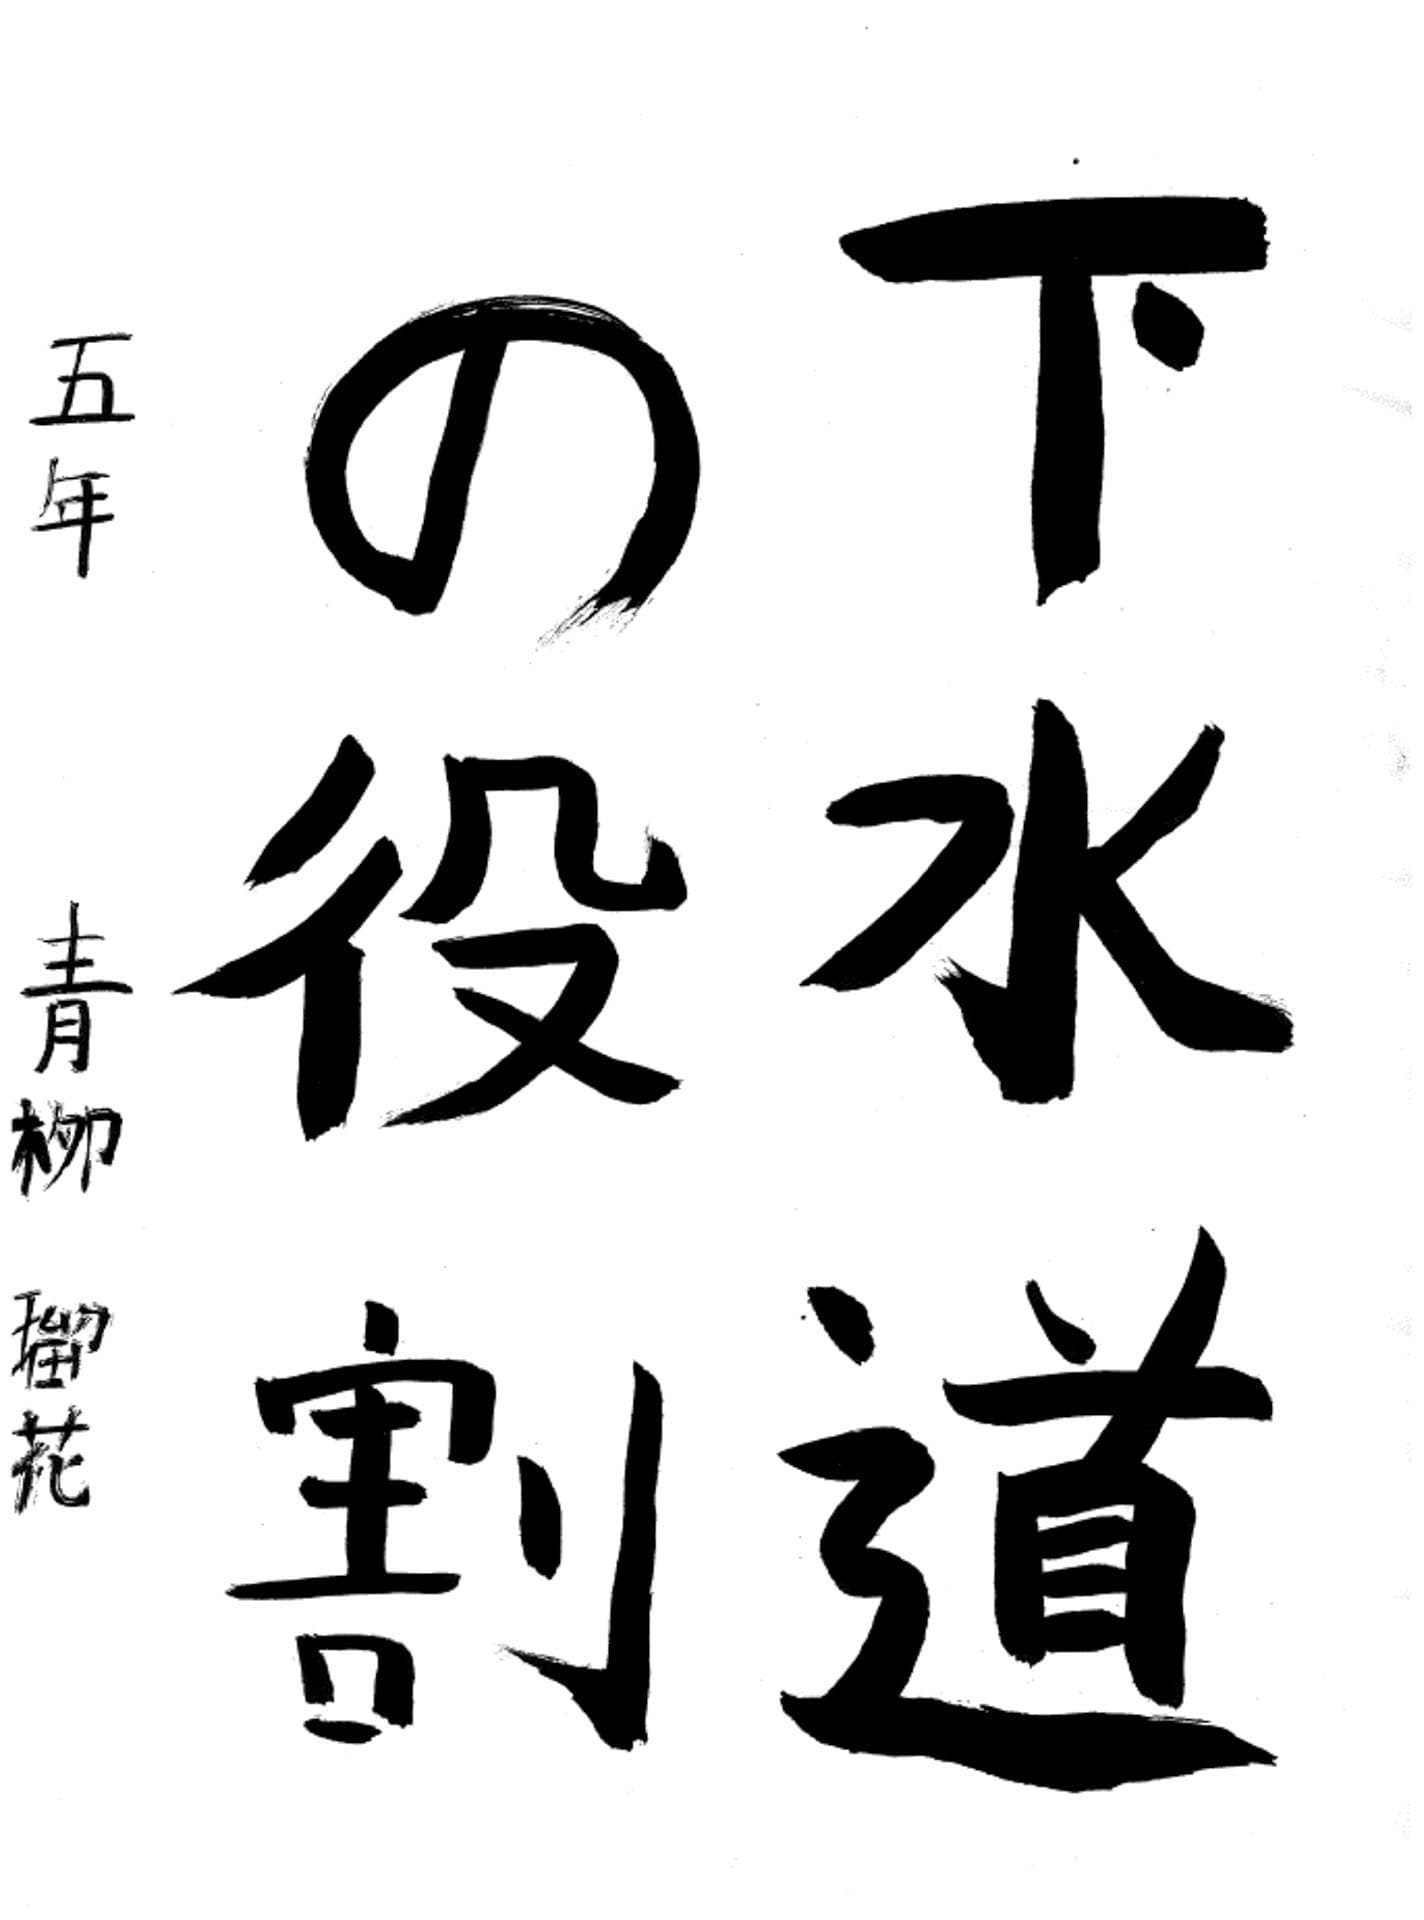 下水道
の役割
五年 青柳 瑠花